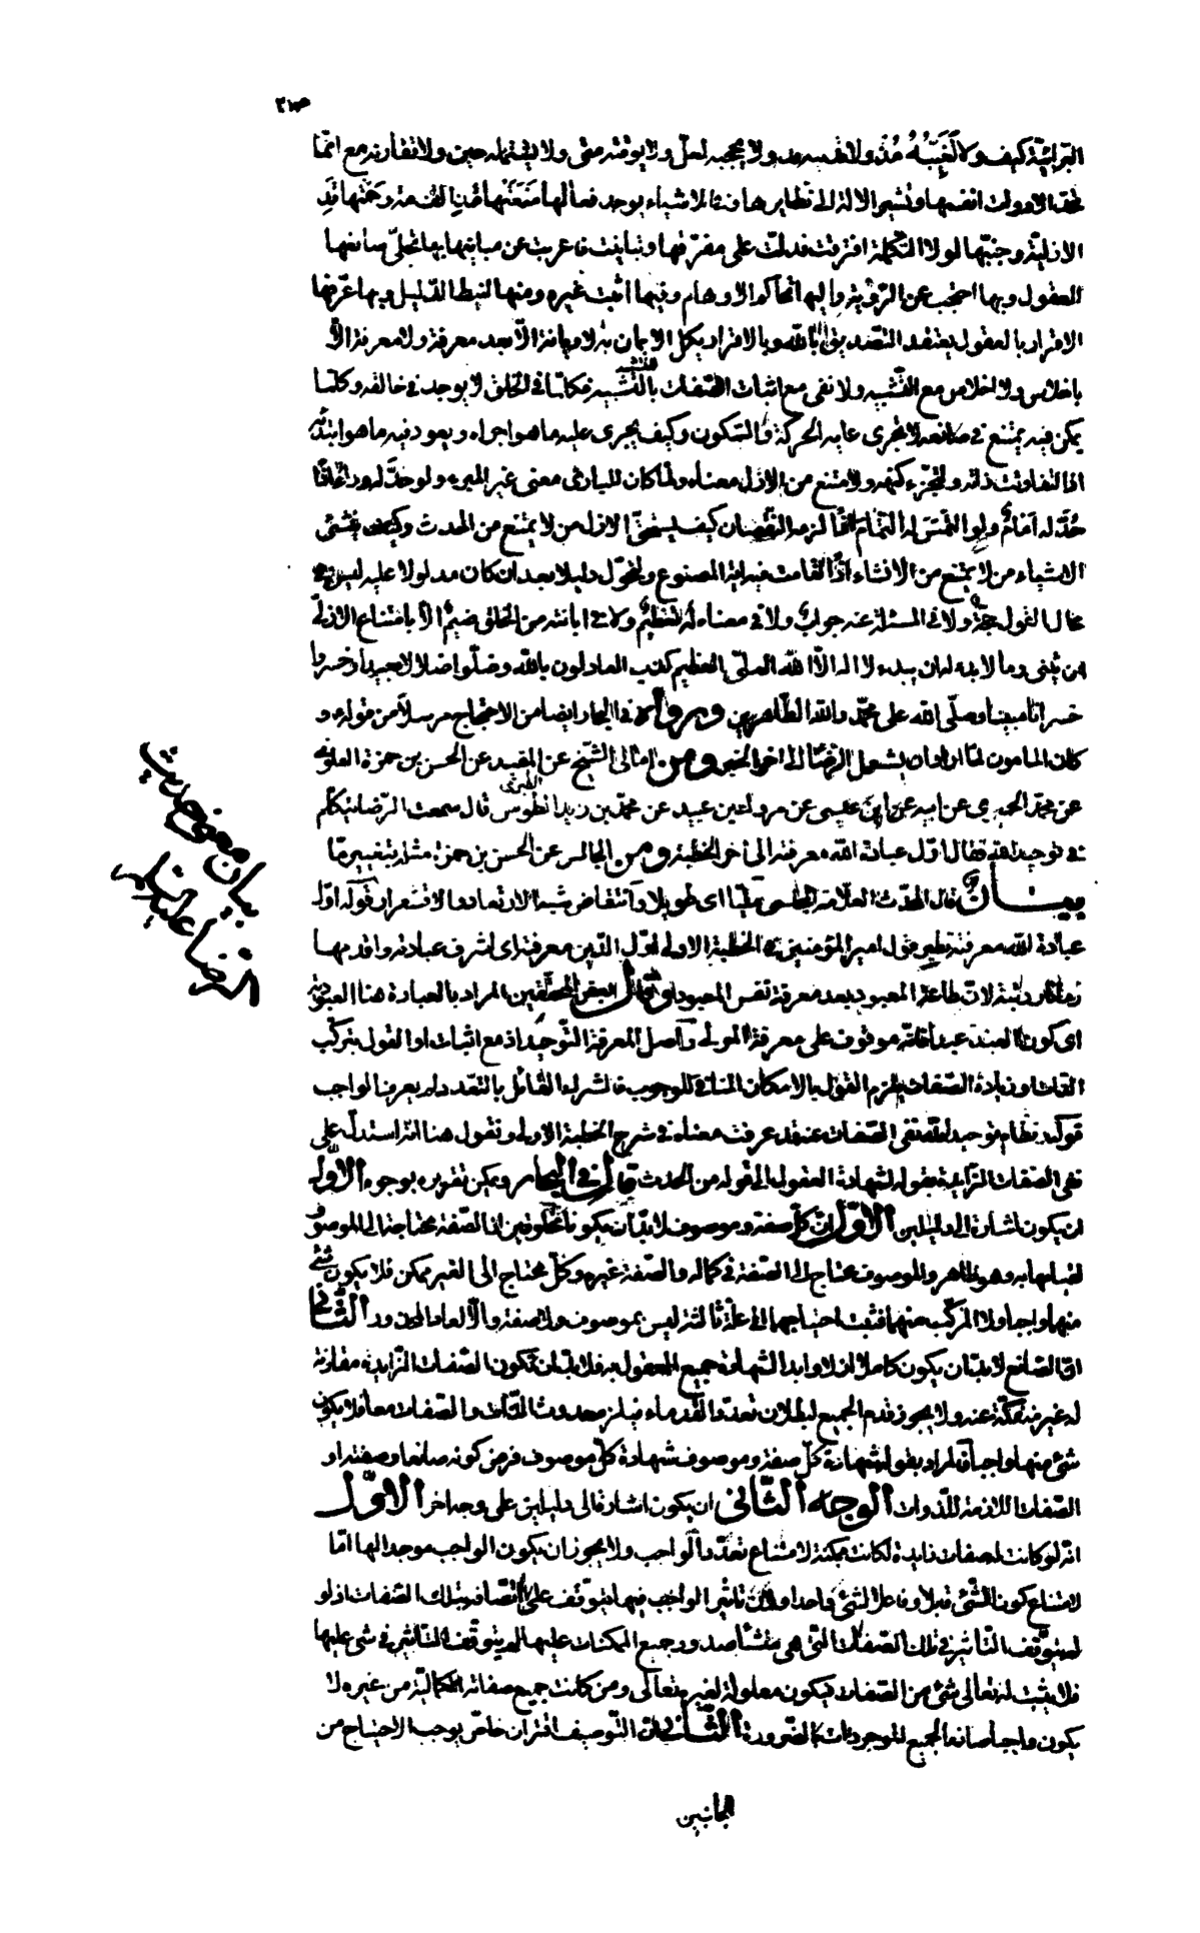 البرائيّة كيف ولا تُغَيِّبُهُ مُذ ولا تدنيه قد ولا يحجبه لعلّ ولا يوقته متى ولا يشتمله حين ولا تقارنه مع انّما
تحدّ الادوات انفسها وتشير الالة الى نظايرها وفى الاشياء يوجد فعالها مَنَعَتْها مُنذ القدمة وحَمَتْها قَدِ
الازليّة وجنبّتها لولا التكملة افترقت فدلّت على مفرّقها وتباينت فاعربت عن مباينها بها تجلّى صانعها
للعقول وبها احتجب عن الرّؤية واليها تحاكم الاوهام وفيها اثبت غيره ومنها انيط الدّليل وبها عرّفها
الاقرار بالعقول يعتقد التّصديق بالله وبالاقرار يكمل الايمان به لا ديانة الّا بعد معرفة ولا معرفة الّا
باخلاص ولا اخلاص مع التّشبيه ولا نفى مع اثبات الصّفات بالتّشبيه فكلّما فى الخلق لا يوجد فى خالقه وكلّما
يمكن فيه يمتنع فى صانعه لا تجرى عليه الحركة والسّكون وكيف يجرى عليه ما هو اجراه ويعود فيه ما هو ابتدئه
اذا لتفاوتت ذاته ولتجزّء كنهه ولامتنع من الازل معناه ولما كان للبارئ معنى غير المبرء ولو حدّ له وراء اذًا
حُدَّ له امام ولو التمس له التّمام اذًا لزمه النّقصان كيف يستحقّ الازل من لا يمتنع من الحدث وكيف ينشئ
الاشياء من لا يمتنع من الانشاء اذًا لقامت فيه اية المصنوع ولتحوّل دليلا بعد ان كان مدلولا عليه ليس فى
محال القول حجّة ولا فى المسئلة عنه جواب ولا فى معناه له تعظيم ولا فى ابانته من الخلق ضيم الّا بامتناع الازلىّ
من يثنى وما لا بدء له ان يبدء لا اله الّا الله العلىّ العظيم كذب العادلون بالله وضلّوا ضلالا بعيدا وخسروا
خسرانا مبينا وصلّى الله على محمّد واله الطّاهرين ورواه فى البحار ايضا من الاحتجاج مرسلاً من قوله و
كان المامون لمّا اراد ان يستعمل الرّضا الى اخر الخبر ومن امالى الشّيخ عن المفيد عن الحسن بن حمزة العلوىّ
عن محمّد الحميرى عن ابيه عن ابن عيسى عن مروك بن عبيد عن محمّد بن زيد الطبرى قال سمعت الرّضا يتكلّم
فى توحيد الله فقال اوّل عبادة الله معرفته الى اخر الخطبة ومن المجالس عن الحسن بن حمزة مثله بتغيير مّا
بيان قال المحدّث العلّامة المجلسى مليّا اى طويلا وانتقاض شبه الارتعاد والاقشعرار قوله اوّل
عبادة الله معرفته نظير قول امير المؤمنين فى الخطبة الاولى اوّل الدّين معرفته اى اشرف عبادته واقدمها
زمانا ورتبة لانّ طاعة المعبود بعد معرفة نفس المعبود وقال بعض المحقّقين المراد بالعبادة هنا العبوديّة
اى كون العبد عبدا فانّه موقوف على معرفة المولى واصل المعرفة التّوحيد اذ مع اثبات او القول بتركّب
الذّات او زيادة الصّفات يلزم القول بالامكان المنافى للوجوب فالشرك القائل بالتعدد لم يعرف الواجب
قوله ونظام توحيد الله نفى الصّفات عنه قد عرفت معناه فى شرح الخطبة الاولى ونقول هنا انّه استدلّ على
نفى الصّفات الزّايدة بقوله لشهادة العقول الى قوله من الحدث قال فى البحار ويمكن تقريره بوجوه الاوّل
ان يكون اشارة الى دليلين الاوّل انّ كلّ صفة وموصوف لا بدّ ان يكونا مخلوقين اذ الصّفة محتاجة الى الموصوف
لقيامها به وهو ظاهر والموصوف محتاج الى الصّفة فى كماله والصّفة غيره وكلّ محتاج الى الغير ممكن فلا يكون شئ
منهما واجبا ولا المركّب منهما فثبت احتياجهما الى علّة ثالثة ليس بموصوف ولا صفة والّا لعاد المحذور الثّانى
انّ الصّانع لا بدّ ان يكون كاملا ازلا وابدا لشهادة جميع العقول به فلا بدّ ان تكون الصّفات الزّايدة مقارنة
له غير منفكّة عنه ولا يجوز قدم الجميع لبطلان تعدّد القدماء فيلزم حدوث الذّات والصّفات معا فلا يكون
شئ منها واجبا فالمراد بقوله شهادة كلّ صفة وموصوف شهادة كلّ موصوف فرض كونه صانعا وصفته او
الصّفات اللازمة للذّوات الوجه الثّانى ان يكون اشارة الى دليلين على وجه اخر الاوّل
انّه لو كانت له صفات زايدة لكانت ممكنة لامتناع تعدّد الواجب ولا يجوز ان يكون الواجب موجدا لها امّا
لامتناع كون الشّئ قابلا وفاعلا لشئ واحد او لانّ تاثير الواجب فيها يتوقّف على اتّصافه بتلك الصّفات اذ لو
لم يتوقّف التّاثير فى تلك الصّفات الّتى هى منشأ صدور جميع الممكنات عليها لم يتوقّف التّاثير فى شئ عليها
فلا يثبت له تعالى شئ من الصّفات فيكون معلولة لغيره تعالى ومن كانت جميع صفاته الكماليّة من غيره لا
يكون واجبا صانعا لجميع الموجودات بالضّرورة الثّانى انّ التّوصيف اقتران خاصّ يوجب الاحتياج من
الجانبين
بيان معنى حديث
الرضا عليه السلام